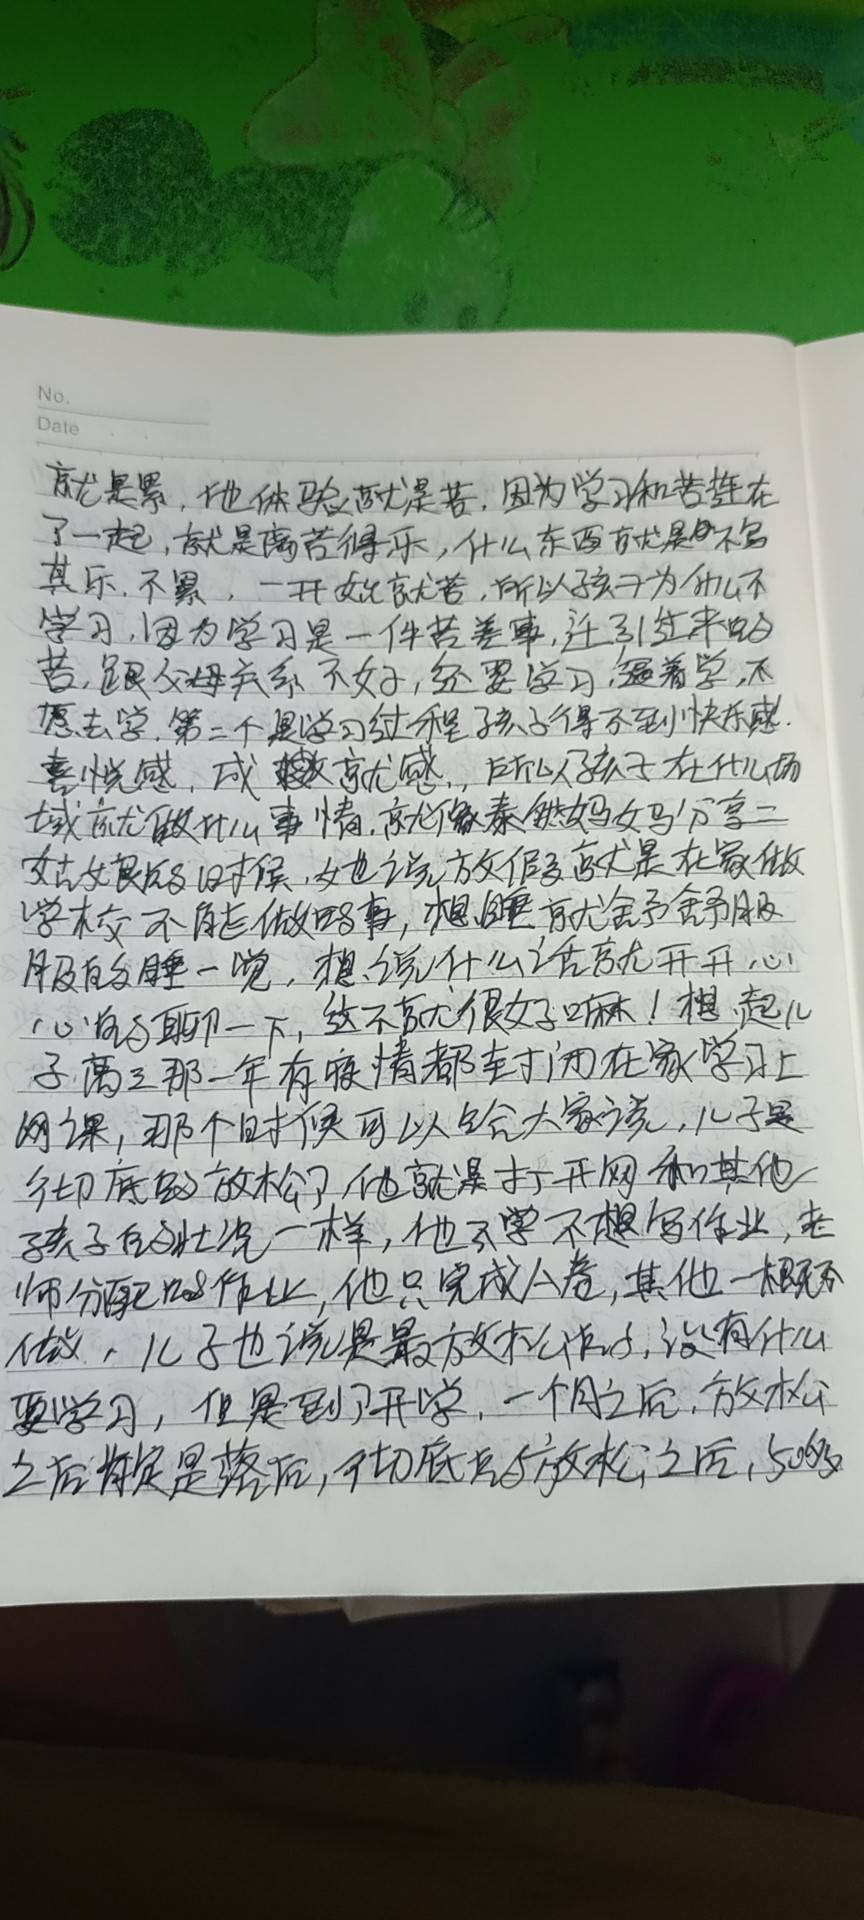 No.
Date
就是累,他体验就是苦,因为学习和苦连在
了一起,就是离苦得乐,什么东西就是
其乐,不累,一开始就苦,所以孩子为什么不
学习,因为学习是一件苦差事,过来的
苦,跟父母关系不好,还要学习,逼着学,不
愿去学.第二个是学习过程孩子得不到快乐感.
喜悦感,成就感,所以孩子在什么场
域就做什么事情.就像泰然妈妈分享二
姑娘的时候,她说放假就是在家做
学校不能做的事,想睡就舒舒服
服的睡一觉,想说什么话就开开心
心的聊一下,这不就很好嘛!想起儿
子高三那一年有疫情都封闭在家学习上
网课,那个时候可以给大家说,儿子是
彻底的放松了他就是打开网和其他
孩子的状况一样,他不学不想写作业,老
师分配的作业,他只完成A卷,其他一概不
做,儿子也说是最放松,没有什么
要学习,但是到了开学,一个月之后,放松
之后肯定是落后,彻底的放松之后,500多